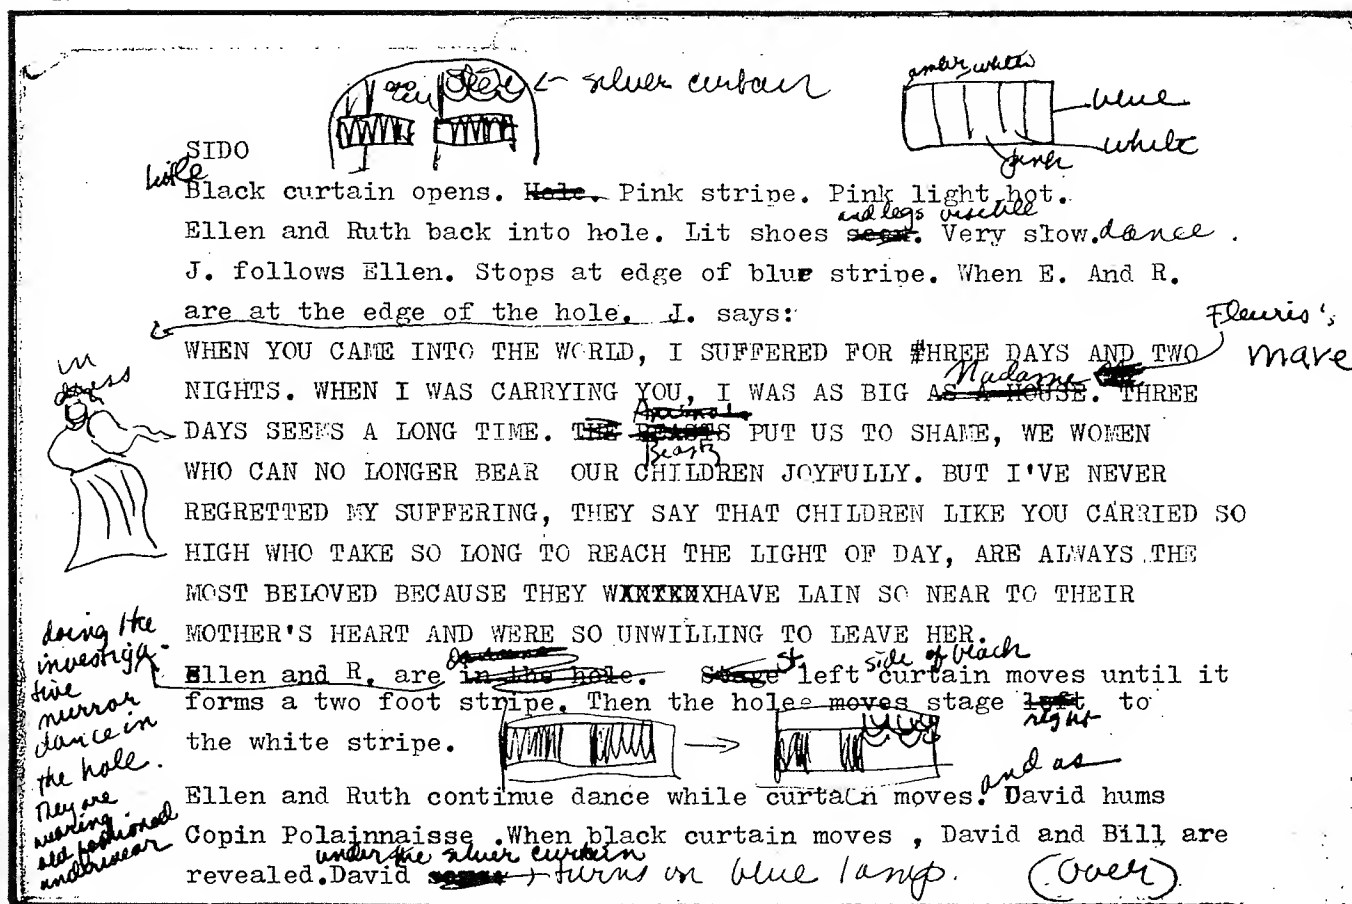 ← silver curtain
amber white
blue
white
pink
SIDO
hole
Black curtain opens. Hole. Pink stripe. Pink light hot.
and legs visible
Ellen and Ruth back into hole. Lit shoes seen. Very slow. dance .
J. follows Ellen. Stops at edge of blue stripe. When E. And R.
are at the edge of the hole. J. says:
Fleuris's
mare
in
dress
WHEN YOU CAME INTO THE WORLD, I SUFFERED FOR THREE DAYS AND TWO
Madame
NIGHTS. WHEN I WAS CARRYING YOU, I WAS AS BIG AS A HOUSE. THREE
Animals
DAYS SEEMS A LONG TIME. THE BEASTS PUT US TO SHAME, WE WOMEN
Beasts
WHO CAN NO LONGER BEAR OUR CHILDREN JOYFULLY. BUT I'VE NEVER
REGRETTED MY SUFFERING, THEY SAY THAT CHILDREN LIKE YOU CARRIED SO
HIGH WHO TAKE SO LONG TO REACH THE LIGHT OF DAY, ARE ALWAYS THE
MOST BELOVED BECAUSE THEY WXXXXXXHAVE LAIN SO NEAR TO THEIR
MOTHER'S HEART AND WERE SO UNWILLING TO LEAVE HER.
doing the
investiga-
tive
mirror
dance in
the hole.
They are
wearing
old fashioned
underwear
St. side of black
Ellen and R. are in the hole. Stage left curtain moves until it
forms a two foot stripe. Then the hole moves stage left to
right
the white stripe. →
and as
Ellen and Ruth continue dance while curtain moves. David hums
Copin Polainnaisse .When black curtain moves , David and Bill are
under the silver curtain
revealed.David turns on blue lamp. (over)